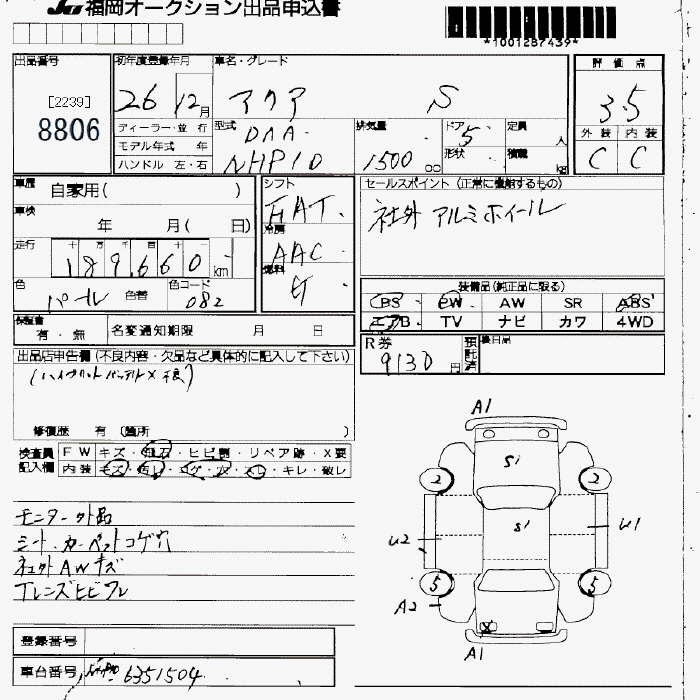 JU 福岡オークション出品申込書
*1001287439*
出品番号 初年度登録年月 車名・グレード 評価点
[2239] 26 12月 アクア S 3.5
8806
ディーラー・並行 型式 DAA- 排気量 ドア 5 定員 人 外装 内装
モデル年式 年 NHP10 1500 cc 形状 積載 kg C C
ハンドル 左・右
車歴 自家用( ) シフト FAT セールスポイント (正常に機能するもの)
車検 年 月( 日) 冷房 AAC 社外 アルミホイール
走行 十 万 千 百 十 189,660 km 燃料 ガ
色 パール 色替 色コード 082 装備品(純正品に限る)
PS PW AW SR ABS
エアB TV ナビ カワ 4WD
保証書 有・無 名変通知期限 月 日
R券 9130円 預託済 後日品
出品店申告欄(不良内容・欠品など具体的に記入して下さい)
(ハイブリットバッテリー× 不良)
修復歴 有 (箇所 )
検査員記入欄 FW キズ・飛石・ヒビ割・リペア跡・X要
内装 キズ・汚レ・コゲ・穴・スレ・キレ・破レ
モニター外品
シート・カーペットコゲ穴
社外AWキズ
Tレンズヒビワレ
登録番号
車台番号 NHP10 6351504
A1
S1
2 2
S1
U2 U1
5 5
A2
X
A1